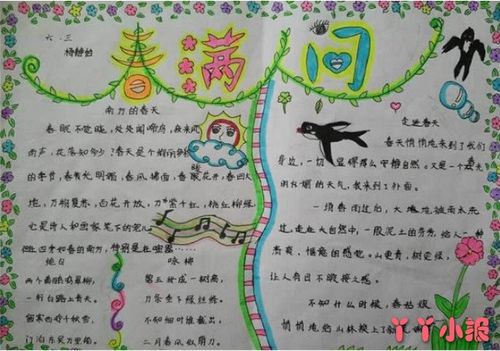 六.三
杨
春满人间
南方的春天
春眠不觉晓,处处闻啼鸟,夜来风
雨声,花落知多少?春天是个
的季节,春有
地,万物复苏,百花齐放,万紫千红,桃红柳绿
它是诗人和画家笔下的
四季如春的南方,特别是在
绝句
两个黄鹂鸣翠柳,
一行白鹭上青天。
窗含西岭千秋雪,
门泊东吴万里船。
咏柳
碧玉妆成一树高,
万条垂下绿丝绦。
不知细叶谁裁出,
二月春风似剪刀。
走进春天
春天悄悄地来到了我们
身边,一切显得那么宁静自然。又是一个
的天气,我来到了
一场春雨过后,大地被雨水
过,走在大自然中,一股泥土的芳香,给人一种
的感觉。山更青,树更绿,
让人有目不暇接之感。
不知什么时候,春姑娘
悄悄地给山林披上了
丫丫小报